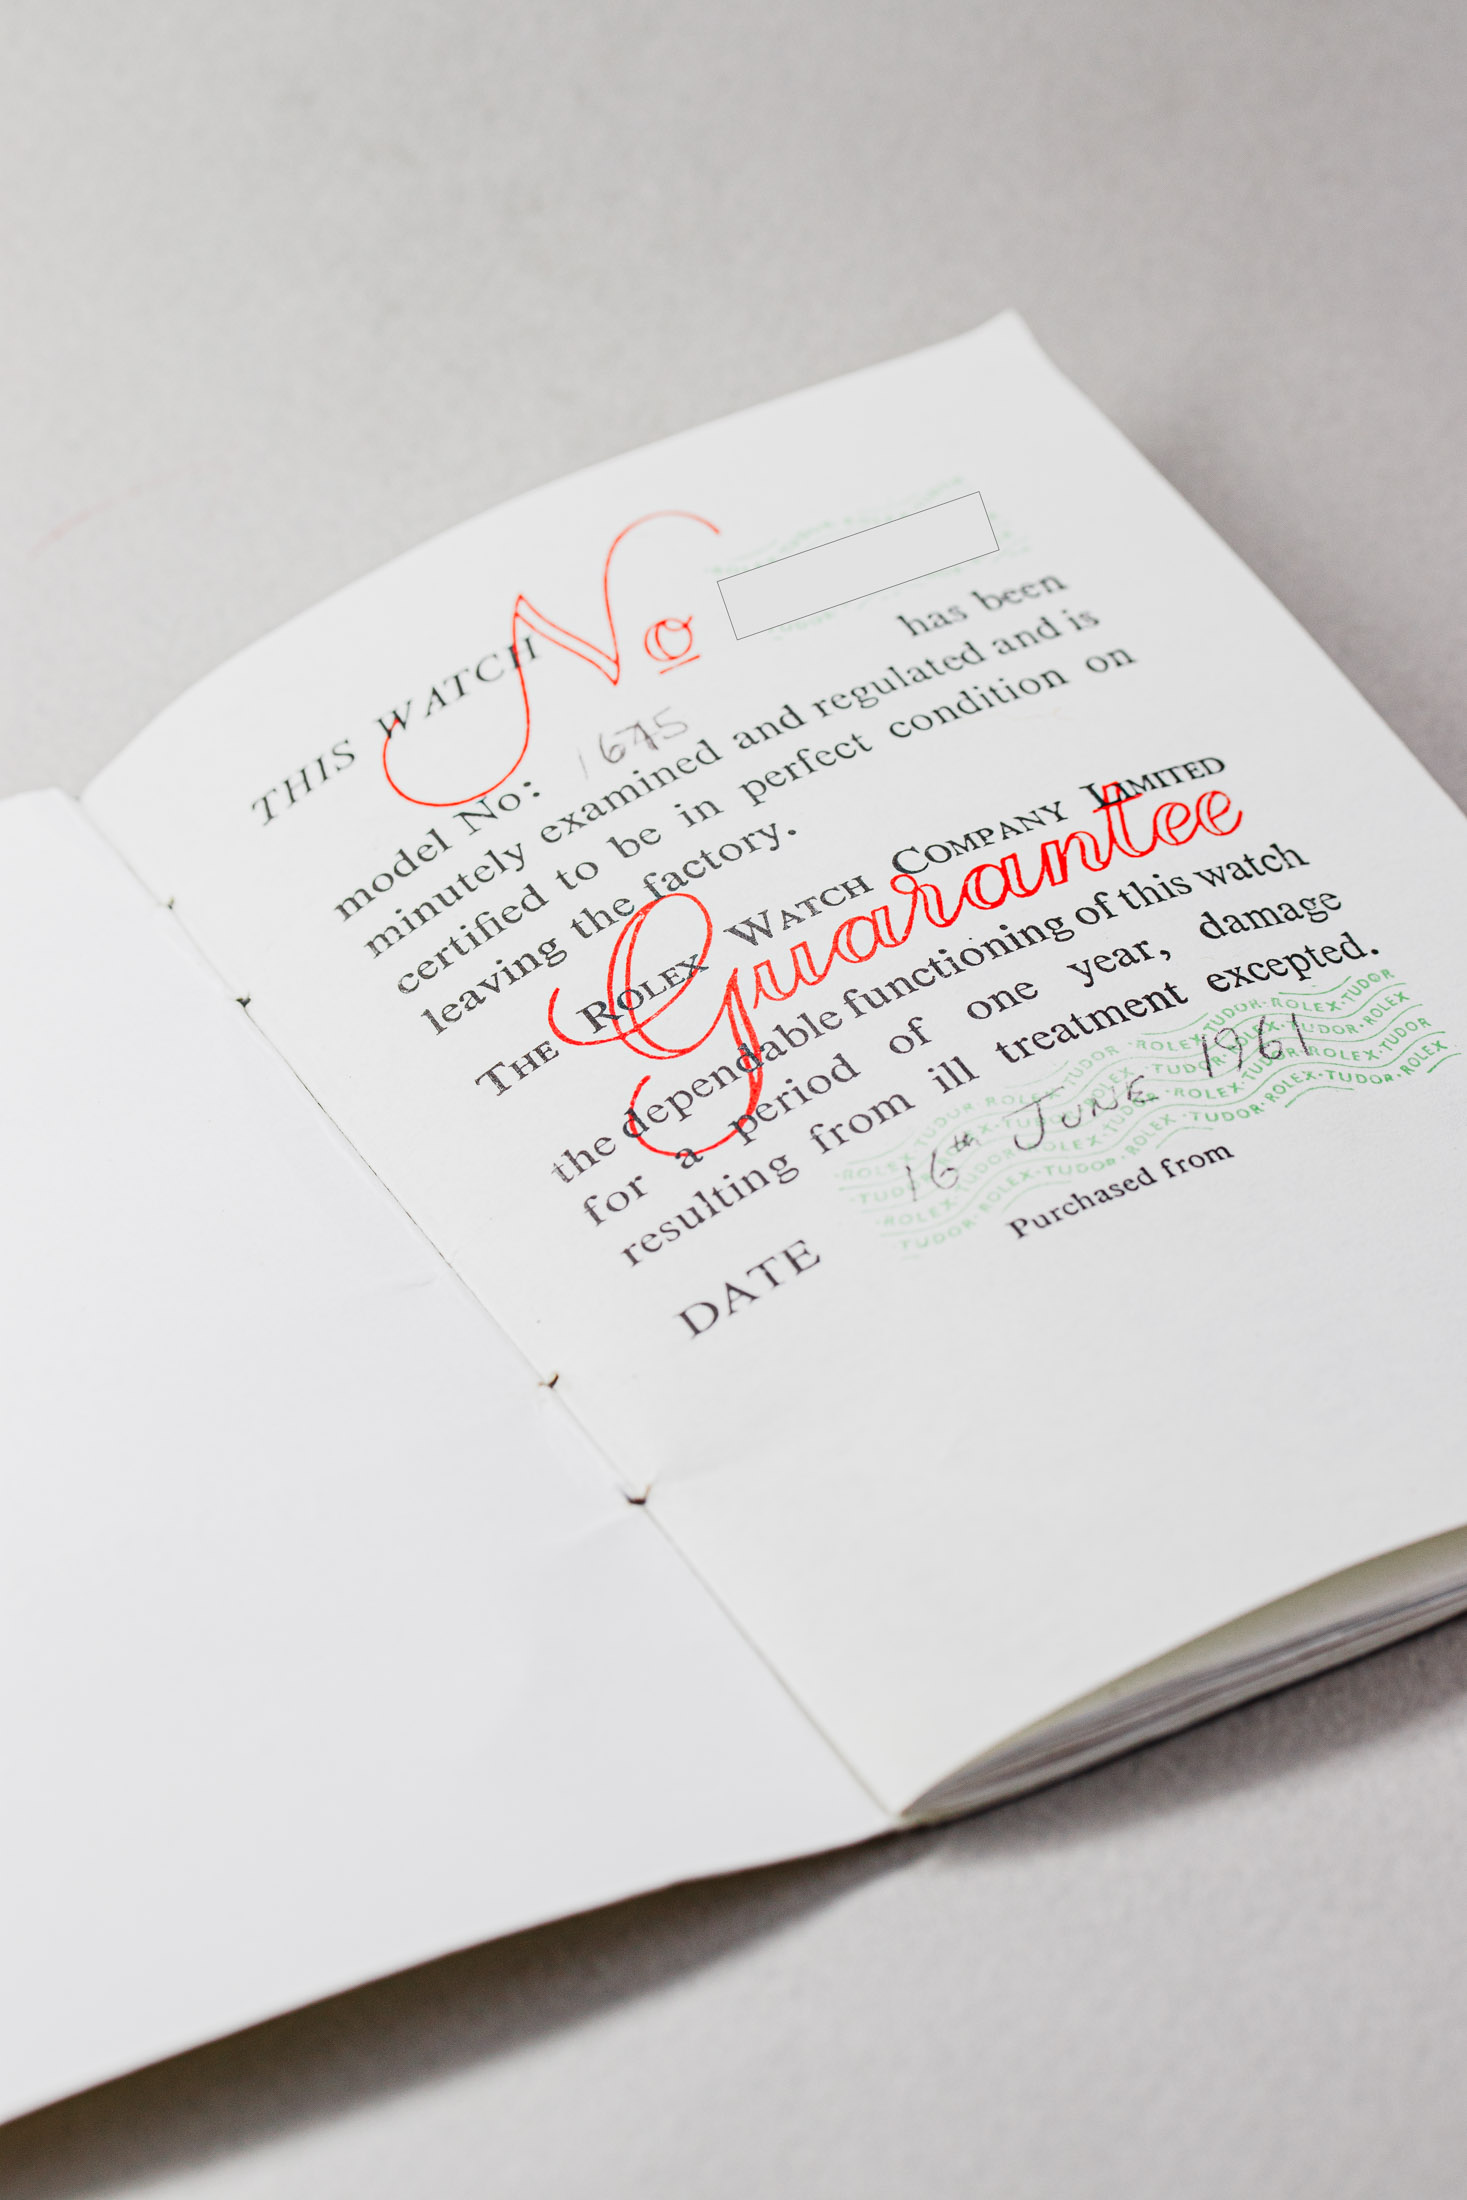 THIS WATCH No
has been
model No: 1675
minutely examined and regulated and is
certified to be in perfect condition on
leaving the factory.
THE ROLEX WATCH COMPANY LIMITED
Guarantee
the dependable functioning of this watch
for a period of one year, damage
resulting from ill treatment excepted.
DATE 16th JUNE 1961
Purchased from
ROLEX·TUDOR·ROLEX·TUDOR